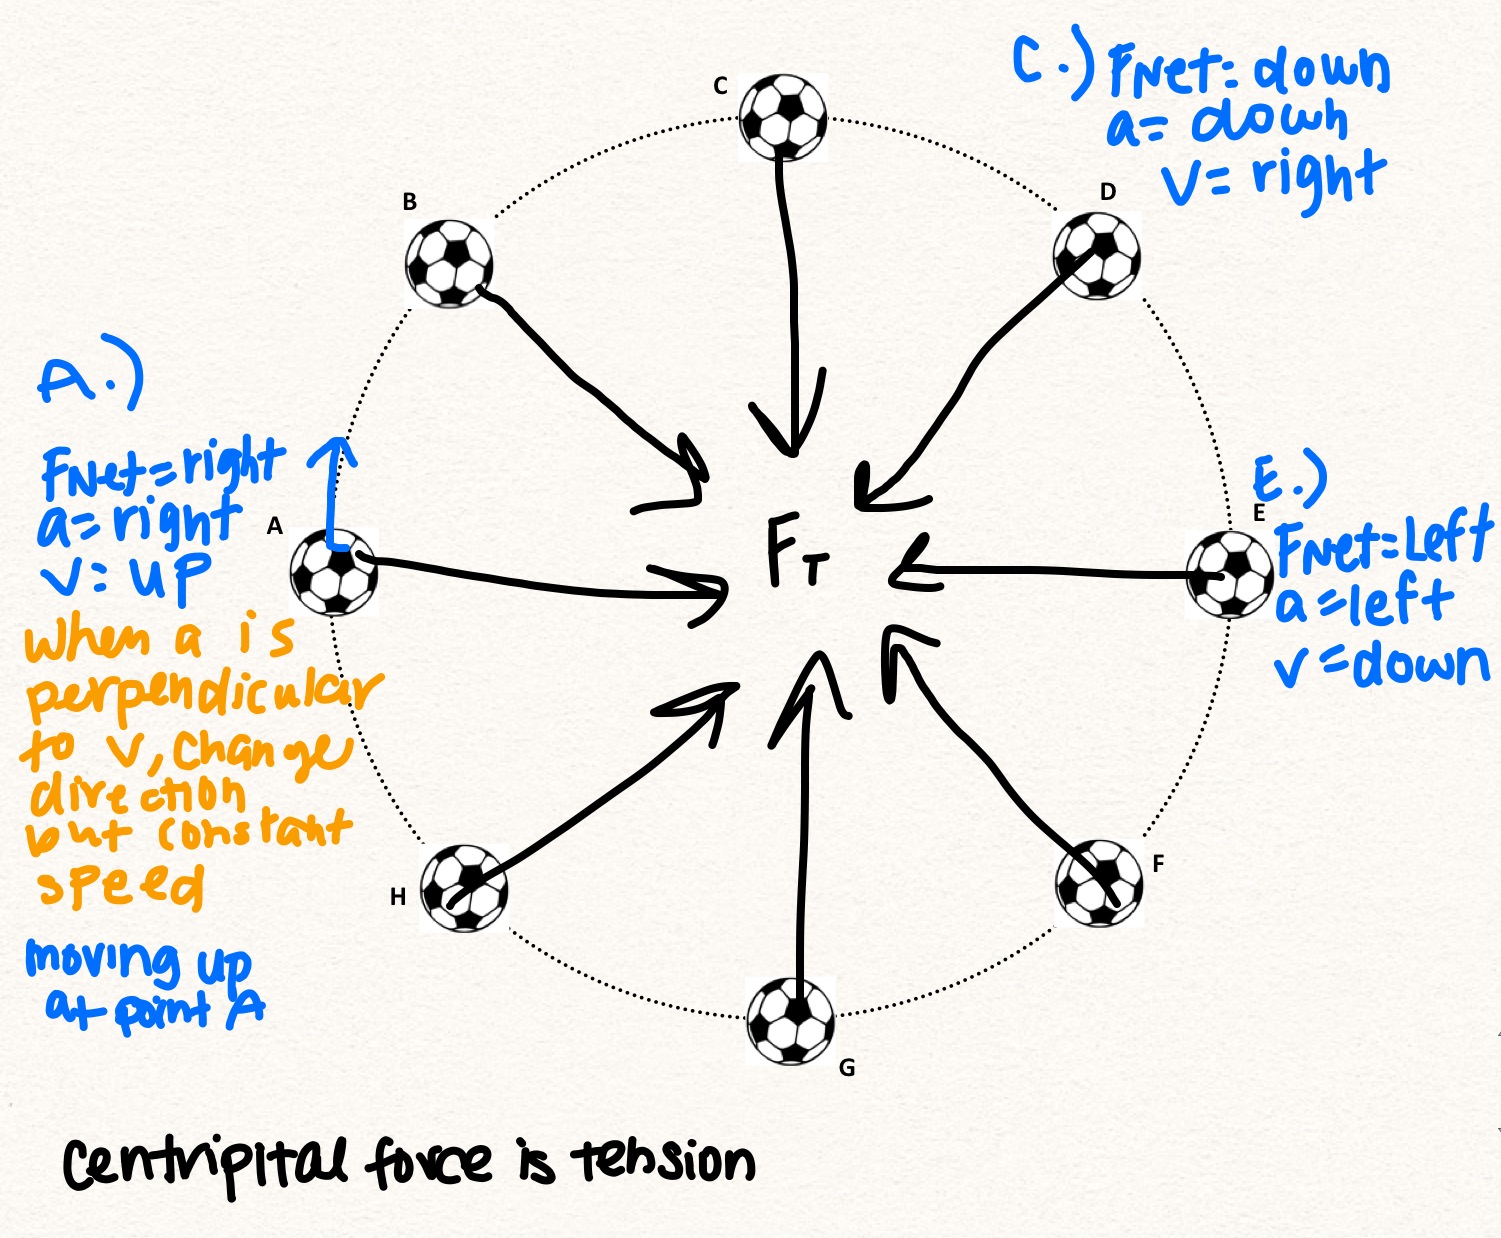 C.) FNet = down
a = down
v = right
C
D
B
A.)
FNet = right
a = right
v = up
A
FT
E.)
E
FNet = Left
a = left
v = down
when a is
perpendicular
to v, change
direction
but constant
speed
moving up
at point A
H
F
G
centripital force is tension